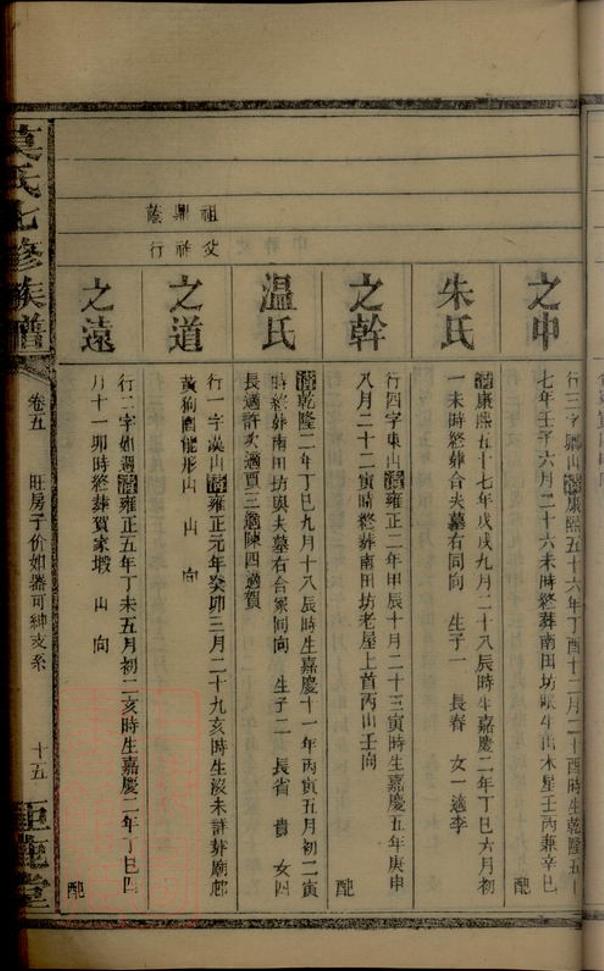 祖鼎蔭
父祚行
之申
行三字 山清康熙五十六年丁酉十二月二十酉時生乾隆五十
七年壬子六月二十六未時終葬南田坊眠牛山木星壬丙兼辛巳
配
朱氏
清康熙五十七年戊戌九月二十八辰時生嘉慶二年丁巳六月初
一未時終葬合夫墓右同向 生子一 長春 女一適李
之幹
行四字東山清雍正二年甲辰十月二十三寅時生嘉慶五年庚申
八月二十二寅時終葬南田坊老屋上首丙山壬向
配
温氏
清乾隆二年丁巳九月十八辰時生嘉慶十一年丙寅五月初二寅
時終葬南田坊與夫墓右合冢同向 生子二 長省 貴 女四
長適許次適賈三適陳四適賀
之道
行一字漢山清雍正元年癸卯三月二十九亥時生沒未詳葬廟邨
黃狗 能形山 山 向
之遠
行二字如遇清雍正五年丁未五月初二亥時生嘉慶二年丁巳四
月十一卯時終葬賀家塅 山 向
配
莫氏七修族譜
卷五 旺房子价如器可紳支系 十五
鉅鹿堂